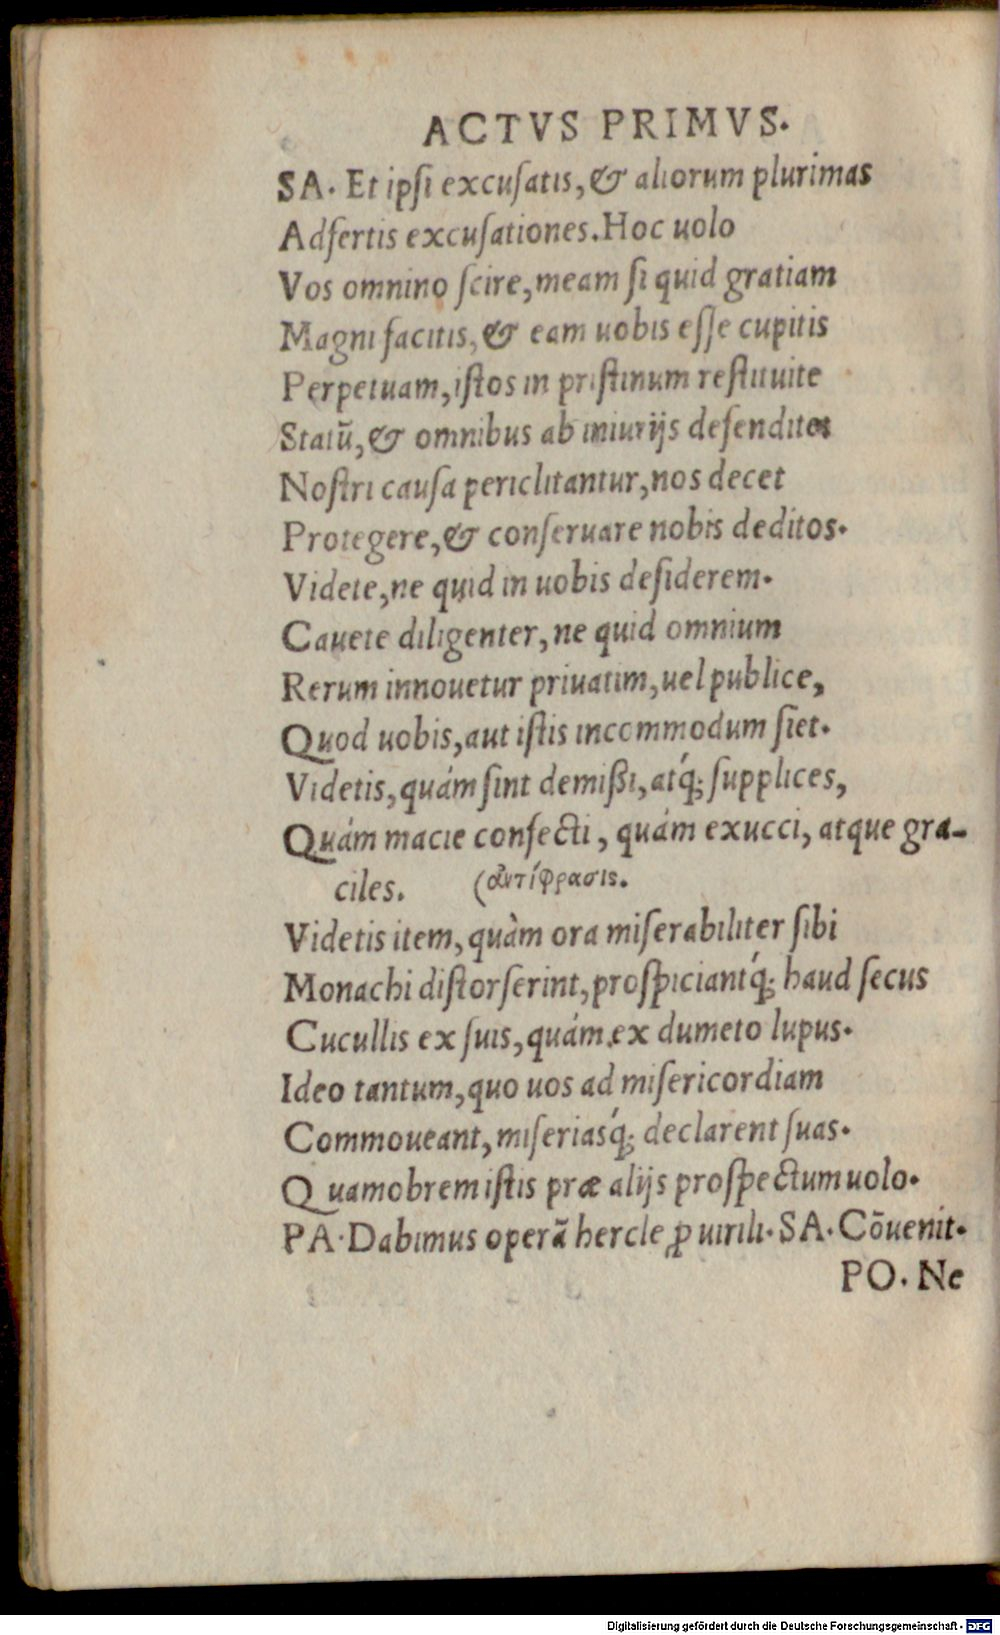 ACTVS PRIMVS.
SA. Et ipsi excusatis, & aliorum plurimas
Adfertis excusationes. Hoc uolo
Vos omnino scire, meam si quid gratiam
Magni facitis, & eam uobis esse cupitis
Perpetuam, istos in pristinum restituite
Statū, & omnibus ab iniurijs defendite
Nostri causa periclitantur, nos decet
Protegere, & conseruare nobis deditos.
Videte, ne quid in uobis desiderem.
Cauete diligenter, ne quid omnium
Rerum innouetur priuatim, uel publice,
Quod uobis, aut istis incommodum siet.
Videtis, quám sint demißi, atq́; supplices,
Quám macie confecti, quám exucci, atque gra-
ciles. (ἀντίφρασις.
Videtis item, quàm ora miserabiliter sibi
Monachi distorserint, prospiciantq́; haud secus
Cucullis ex suis, quám ex dumeto lupus.
Ideo tantum, quo uos ad misericordiam
Commoueant, miseriasq́; declarent suas.
Quamobrem istis præ alijs prospectum uolo.
PA. Dabimus operā hercle ꝓ uirili. SA. Cōuenit.
PO. Ne
Digitalisierung gefördert durch die Deutsche Forschungsgemeinschaft - DFG